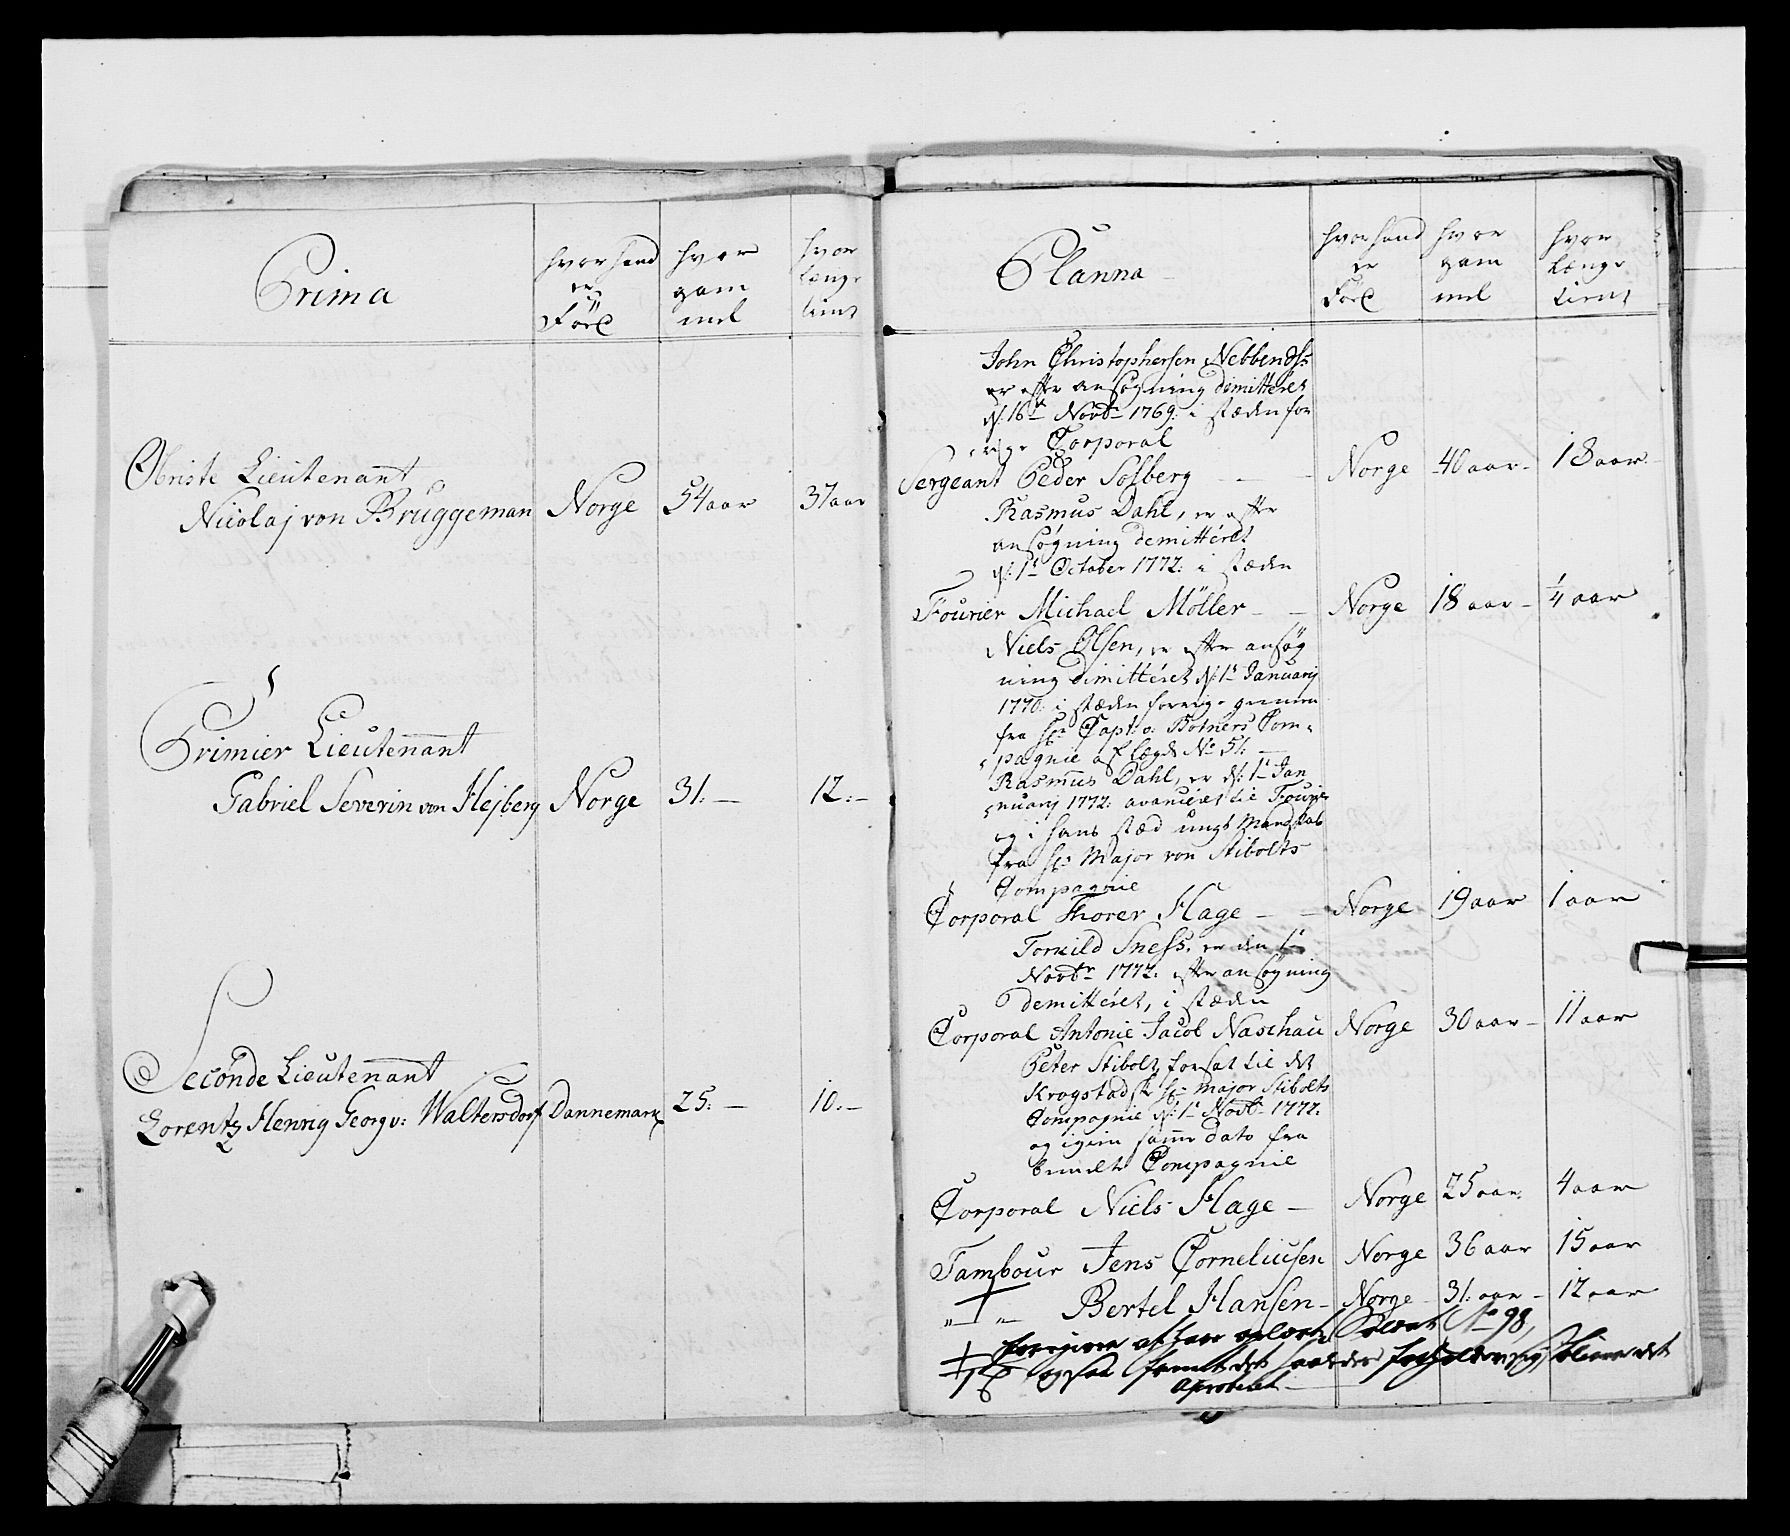 Prima
hvor hand
er
Föed
hvor
gam
mel
hvor
længe
tient
Obriste Lieutenant
Nicolaj von Brüggeman Norge 54 aar 37 aar
Primier Lieutenant
Gabriel Severin von Hejberg Norge 31:— 12:—
Seconde Lieutenant
Lorentz Henrig Georg v: Waltersdorf Dannemark 25:— 10:—
Planna
hvor hand
er
Föed
hvor
gam
mel
hvor
længe
tient
John Christophersen Nebbendss
er efter ansøgning dimitteret
d: 16de Novbr 1769: i stæden for
rige Corporal
Sergeant Peder Solberg — — Norge 40 aar — 18 aar
Rasmus Dahl, er efter
ansøgning demitteret
d: 1te October 1772: i stæden
Fourier Michael Möller — — Norge 18 aar — 1/4 aar
Niels Olsen, er efter ansøg
ning dimitteret d: 1te Januarij
1770: i stæden forrige gemeen
fra Hr Capt: v: Botners Com=
pagnie af Legd No 51: —
Rasmus Dahl, er d: 1te Jan
nuarij 1772: avanceret til Fourier
og i hans stæd ungt Mandskab
fra Hr Major von Stibolts
Compagnie
Corporal Thorer Hage — — Norge 19 aar 1 aar
Torkild Sness. er den 1te
Novbr 1772: efter ansøgning
demitteret, i stæden
Corporal Antonie Jacob Naschau Norge 30 aar — 11 aar
Peter Stibolt, forsat til det
Krogstadsk Hr Major Stibolts
Compagnie d: 1te Novbr 1772:
og igien samme dato fra
bemelte Compagnie
Corporal Niels Hage — Norge 25 aar 4 aar
Tambour Jens Corneliusen Norge 36 aar 15 aar
" — " — Bertel Hansen — Norge 31: aar — 12 aar
at have oplært Soldat No 98,
ogsaa forholder sig
Aproberet —